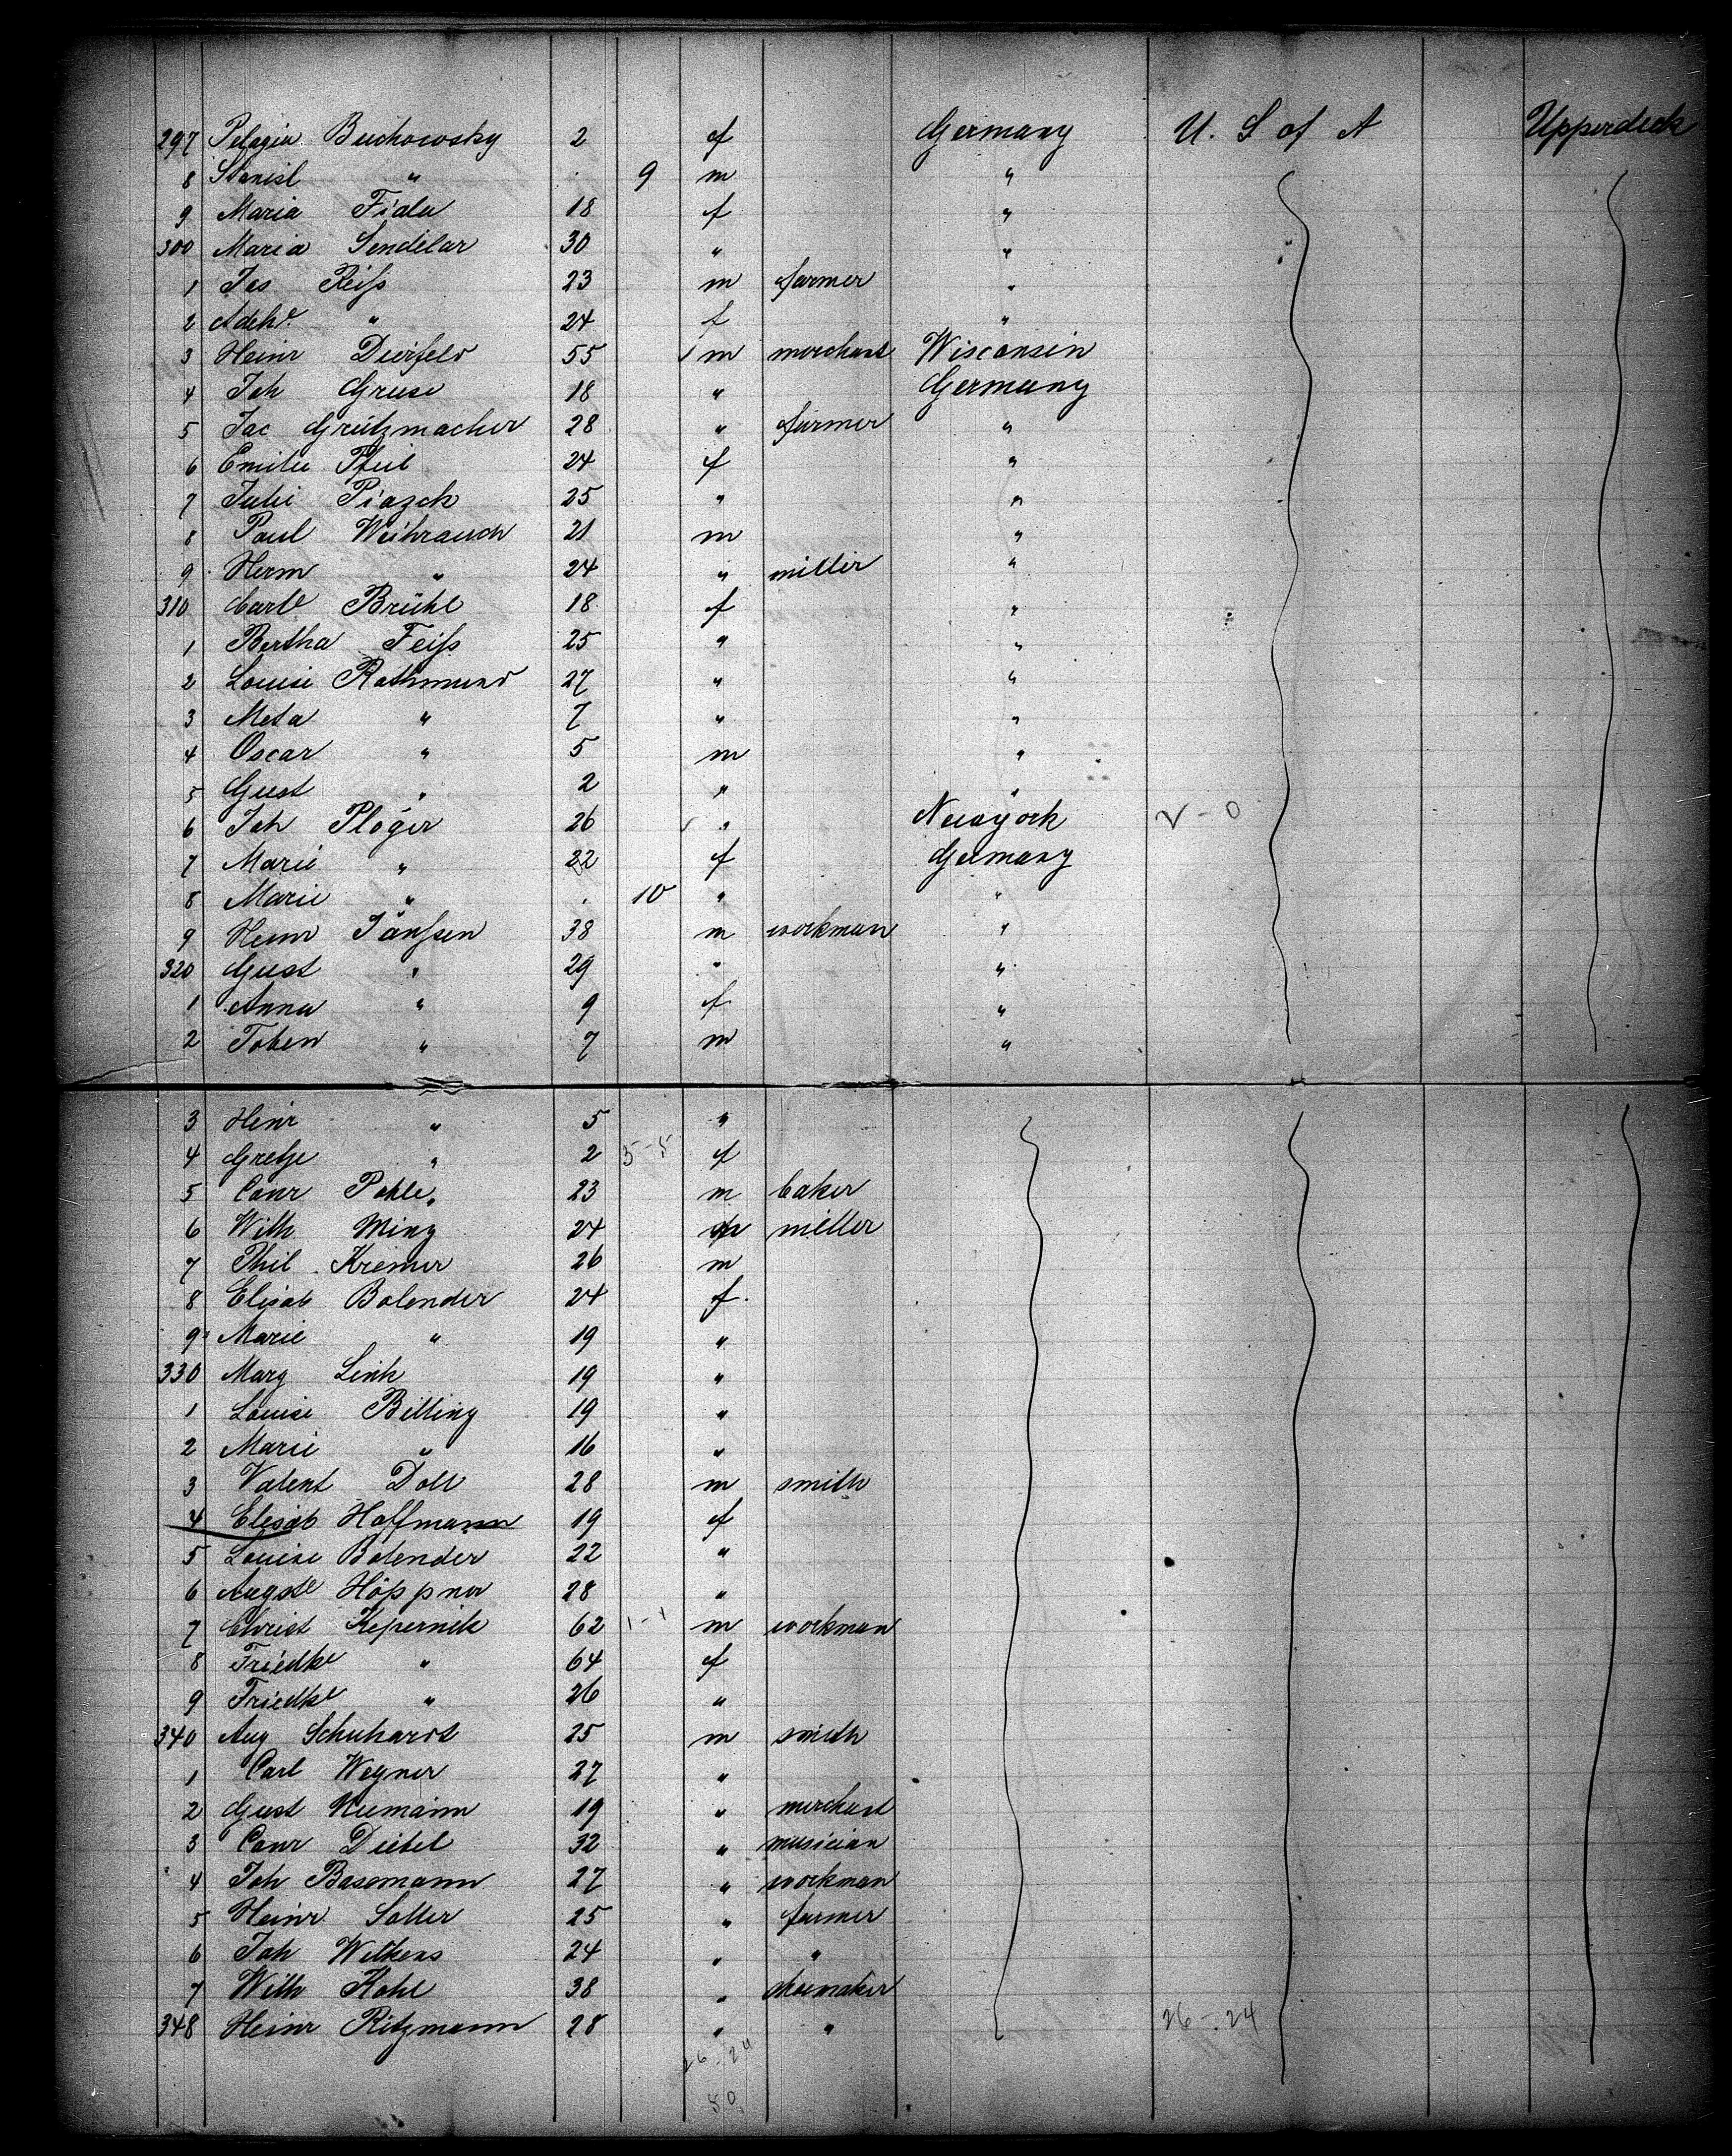 297 Pelagia Buchowsky 2 f Germany U. S of A Upperdeck
8 Stanisl " 9 m "
9 Maria Fiala 18 f "
300 Maria Sendelar 30 " "
1 Jos Reiß 23 m farmer "
2 Adelh. " 24 f "
3 Heinr 55 m merchant Wisconsin
4 Joh Gruse 18 " Germany
5 Jac Grützmacher 28 " farmer "
6 Emilie Pfeil 24 f "
7 Julie Piazeck 25 " "
8 Paul Weihrauch 21 m "
9 Herm " 24 " miller "
310 Carle Brühl 18 f "
1 Bertha Feiß 25 " "
2 Louise Rothmund 27 " "
3 Meta " 7 " "
4 Oscar " 5 m "
5 Gust " 2 " "
6 Joh Plöger 26 " Newyork 2 - 0
7 Marie " 22 f Germany
8 Marie " 10 " "
9 Heinr Janßen 38 m workman "
320 Gust " 29 " "
1 Anna " 9 f "
2 Toben " 7 m "
3 Heinr " 5 "
4 Gretje " 2 f
5 Conr Pohle 23 m baker
6 Wilh Ming 24 m miller
7 Phil Kremer 26 m
8 Elisab Bolender 24 f
9 Marie " 19 "
330 Marg Link 19 "
1 Louise Billing 19 "
2 Marie " 16 "
3 Valent Doll 28 m smith
4 Elisab Hoffmann 19 f
5 Louise Bolender 22 "
6 Augste Höppner 28 "
7 Christ Kepernik 62 1-1 m workman
8 Friedke " 64 f
9 Friedke " 26 "
340 Aug Schuhardt 25 m smith
1 Carl Wegner 27 "
2 Gust Neumann 19 " merchant
3 Conr Diebel 32 " musician
4 Joh Bassmann 27 " workman
5 Heinr Soller 25 " farmer
6 Joh Wilkens 24 " "
7 Wilh Kohl 38 " shoemaker
348 Heinr Ritzmann 28 " " 26-24
26-24
50